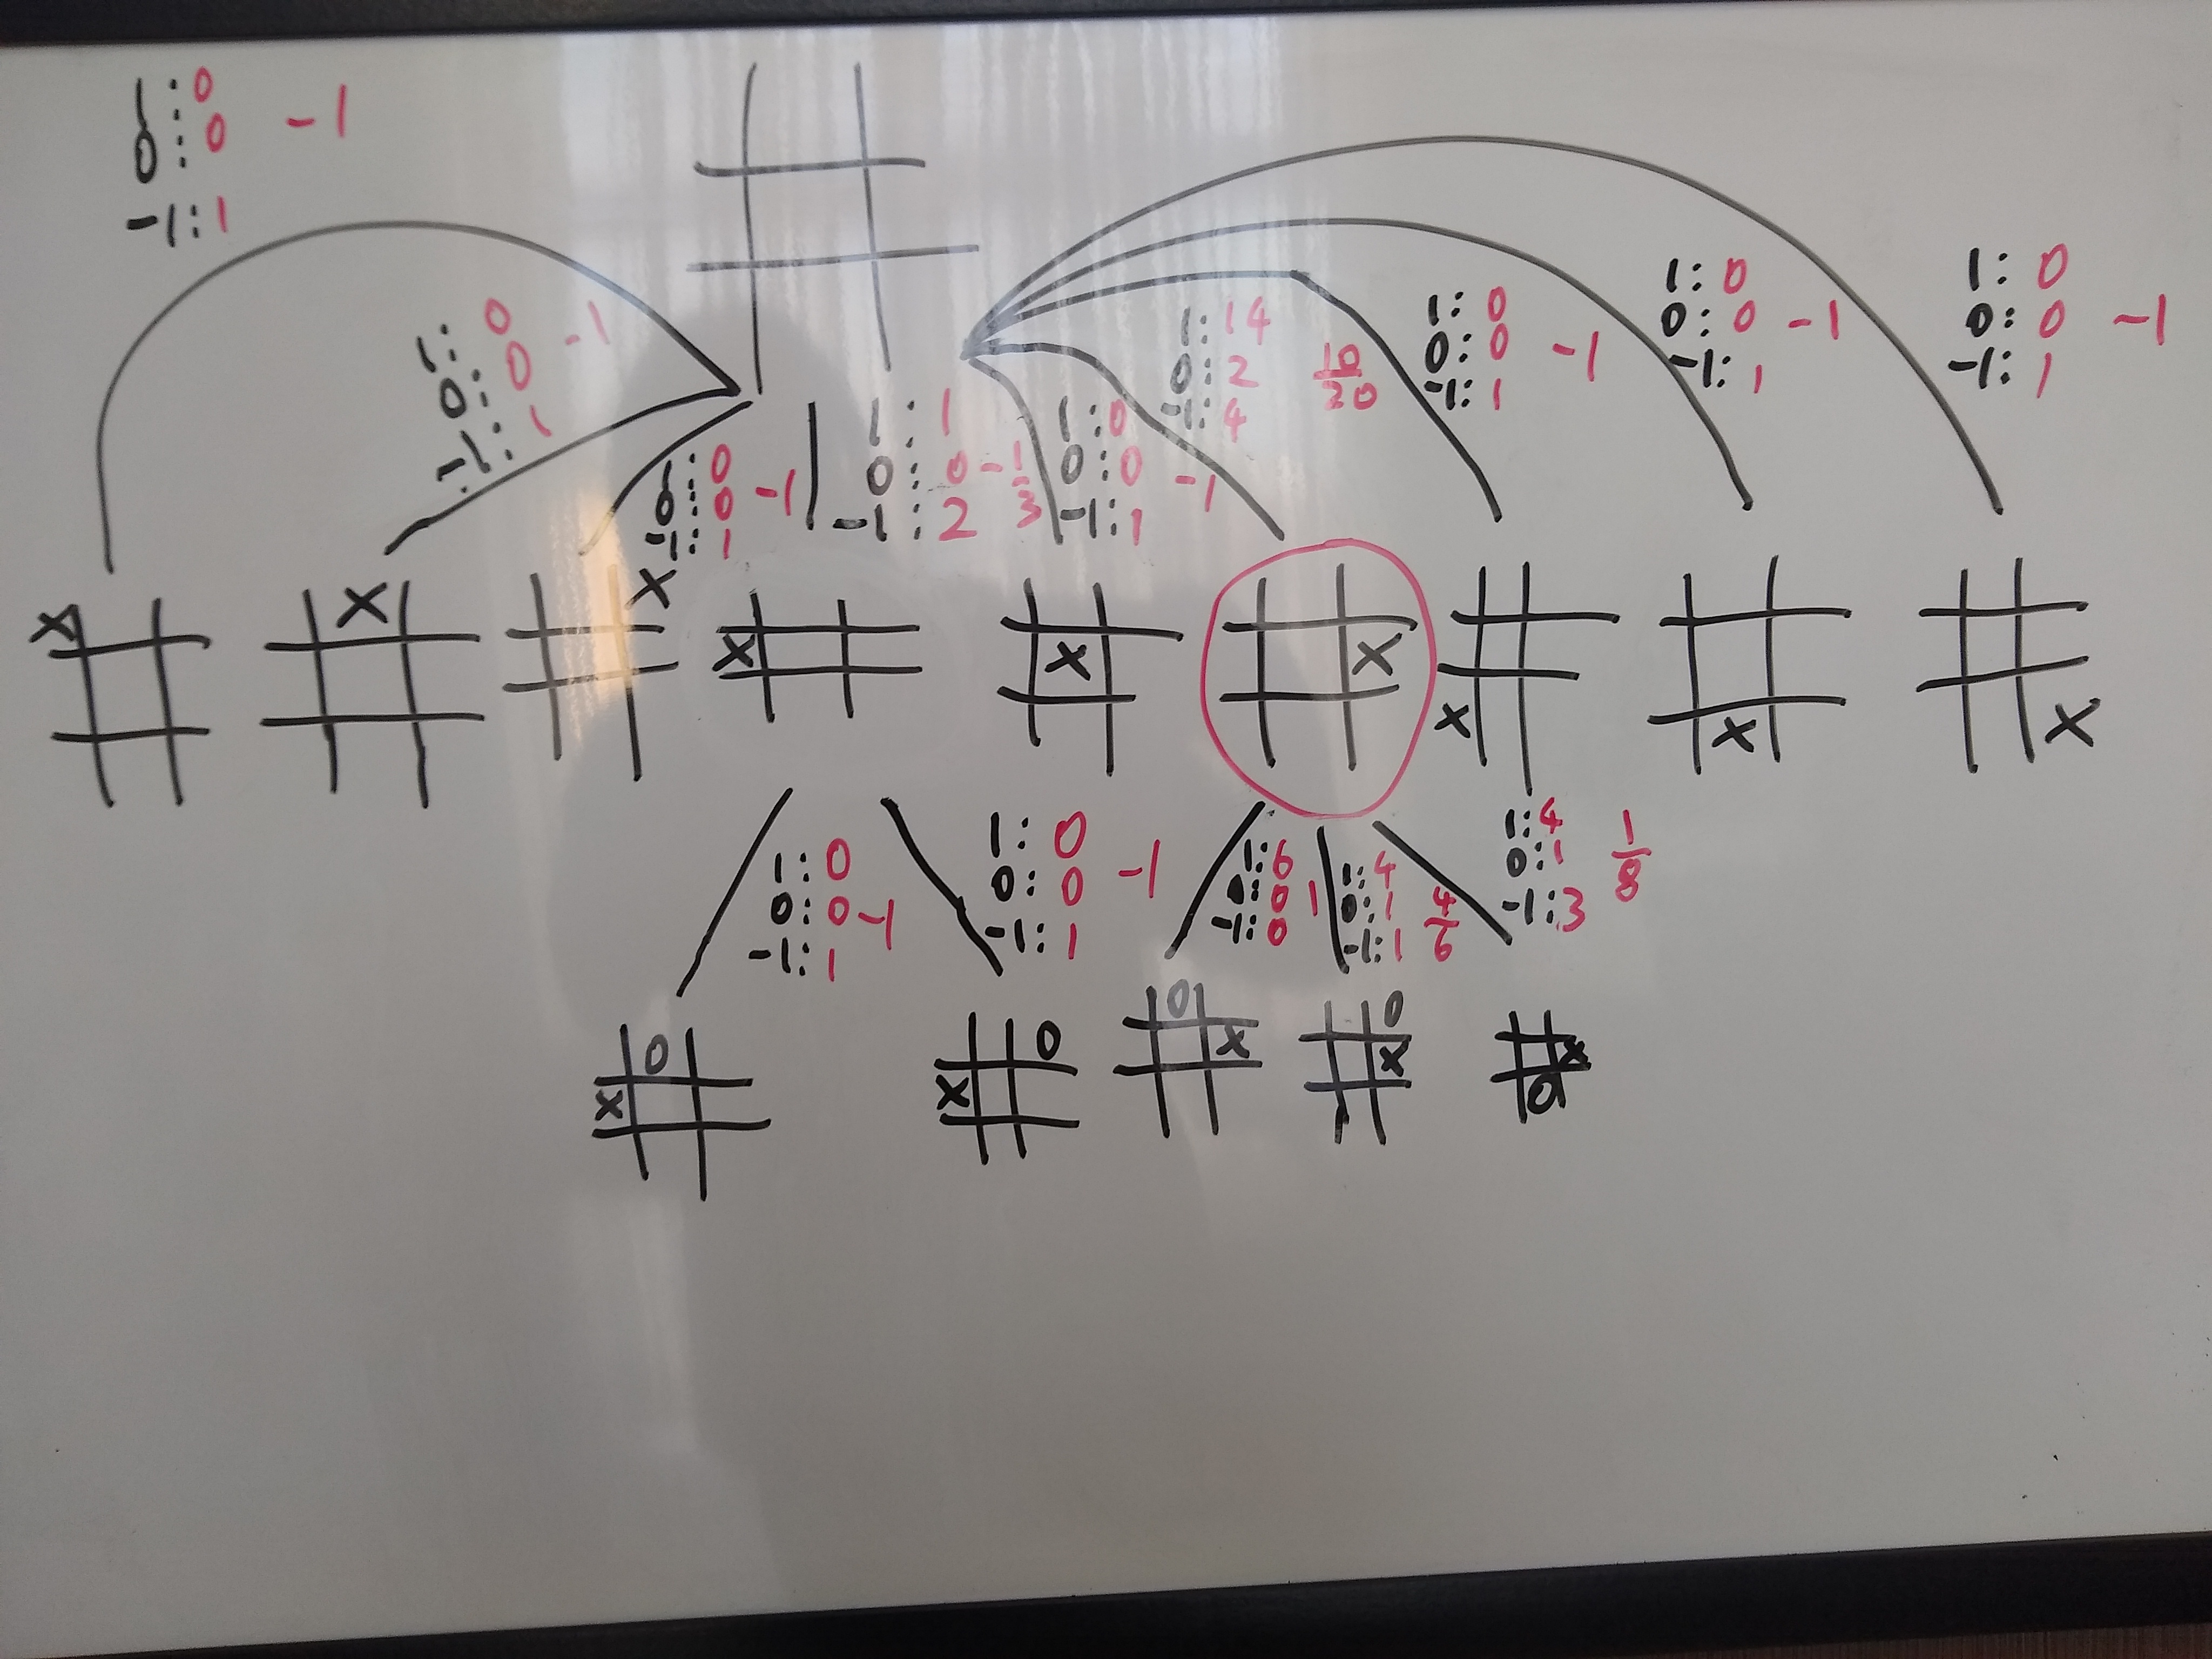 1:0
0:0 -1
-1:1
1:0
0:0 -1
-1:1
1:0
0:0 -1
-1:1
1:1
0:0 -1/3
-1:2
1:0
0:0 -1
-1:1
1:14
0:2 10/20
-1:4
1:0
0:0 -1
-1:1
1:0
0:0 -1
-1:1
1:0
0:0 -1
-1:1
X X X X X X X X X
1:0
0:0 -1
-1:1
1:0
0:0 -1
-1:1
1:6
0:0 1
-1:0
1:4
0:1 4/6
-1:1
1:4
0:1 1/8
-1:3
O
X
O
X
O
X
O
X
X
O